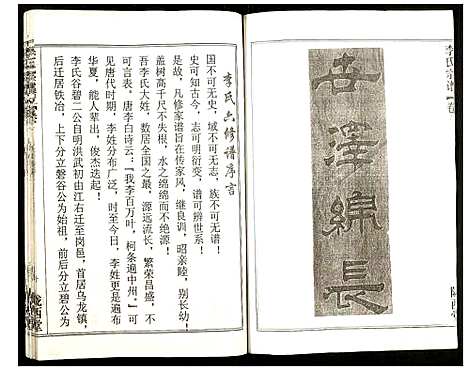 李氏宗谱 卷
世澤綿長
李氏六修谱序言
国不可无史，域不可无志，族不可无谱！
史可知古今，志可明衍变，谱可辨世系！
是故，凡修家谱旨在传家风，继良训，昭亲睦，别长幼！
盖树高千尺不失根，水之绵绵而不绝源！
吾李氏大姓，数居全国之最，源远流长，繁荣昌盛，不
可言表。唐李白诗云：『我李百万叶，柯条遍中州。』可
见唐代时期，李姓分布广泛，时至今日，李姓更是遍布
华夏，能人辈出，俊杰迭起！
李氏谷碧二公自明洪武初由江右迁至岗邑，首居乌龙镇，
后迁居铁冶，上下分立磐谷公为始祖，前后分立碧公为
陇西堂